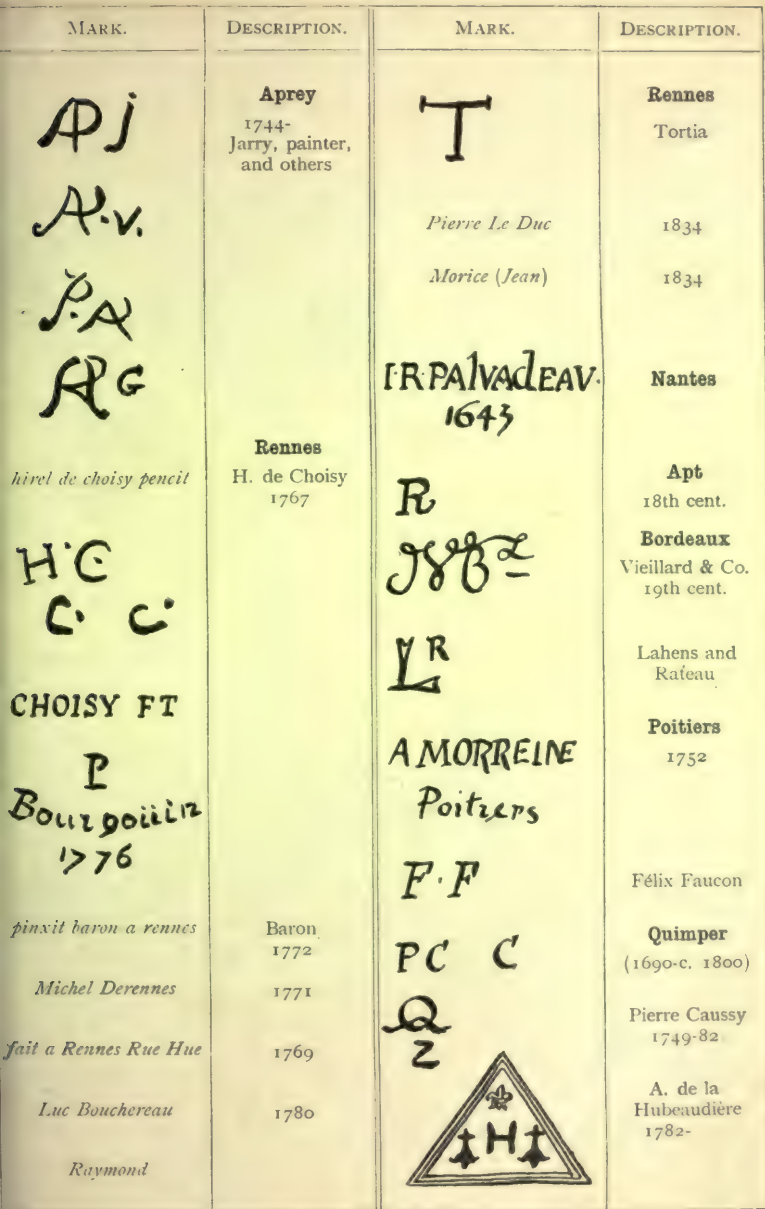 MARK.
DESCRIPTION.
AP J
Aprey
1744-
Jarry, painter,
and others
AP. V.
P. A
AP G
Rennes
hirel de choisy pencit
H. de Choisy
1767
H. C
C. C.
CHOISY FT
P
Bourgoüin
1776
pinxit baron a rennes
Baron
1772
Michel Derennes
1771
fait a Rennes Rue Hue
1769
Luc Bouchereau
1780
Raymond
MARK.
DESCRIPTION.
T
Rennes
Tortia
Pierre Le Duc
1834
Morice (Jean)
1834
I·R·PAlVAdEAV·
1643
Nantes
R
Apt
18th cent.
Bordeaux
Vieillard & Co.
19th cent.
L R
Lahens and
Rateau
A MORREINE
Poitiers
Poitiers
1752
F. F
Félix Faucon
PC C
Quimper
(1690-c. 1800)
Q
2
Pierre Caussy
1749-82
H
A. de la
Hubeaudière
1782-